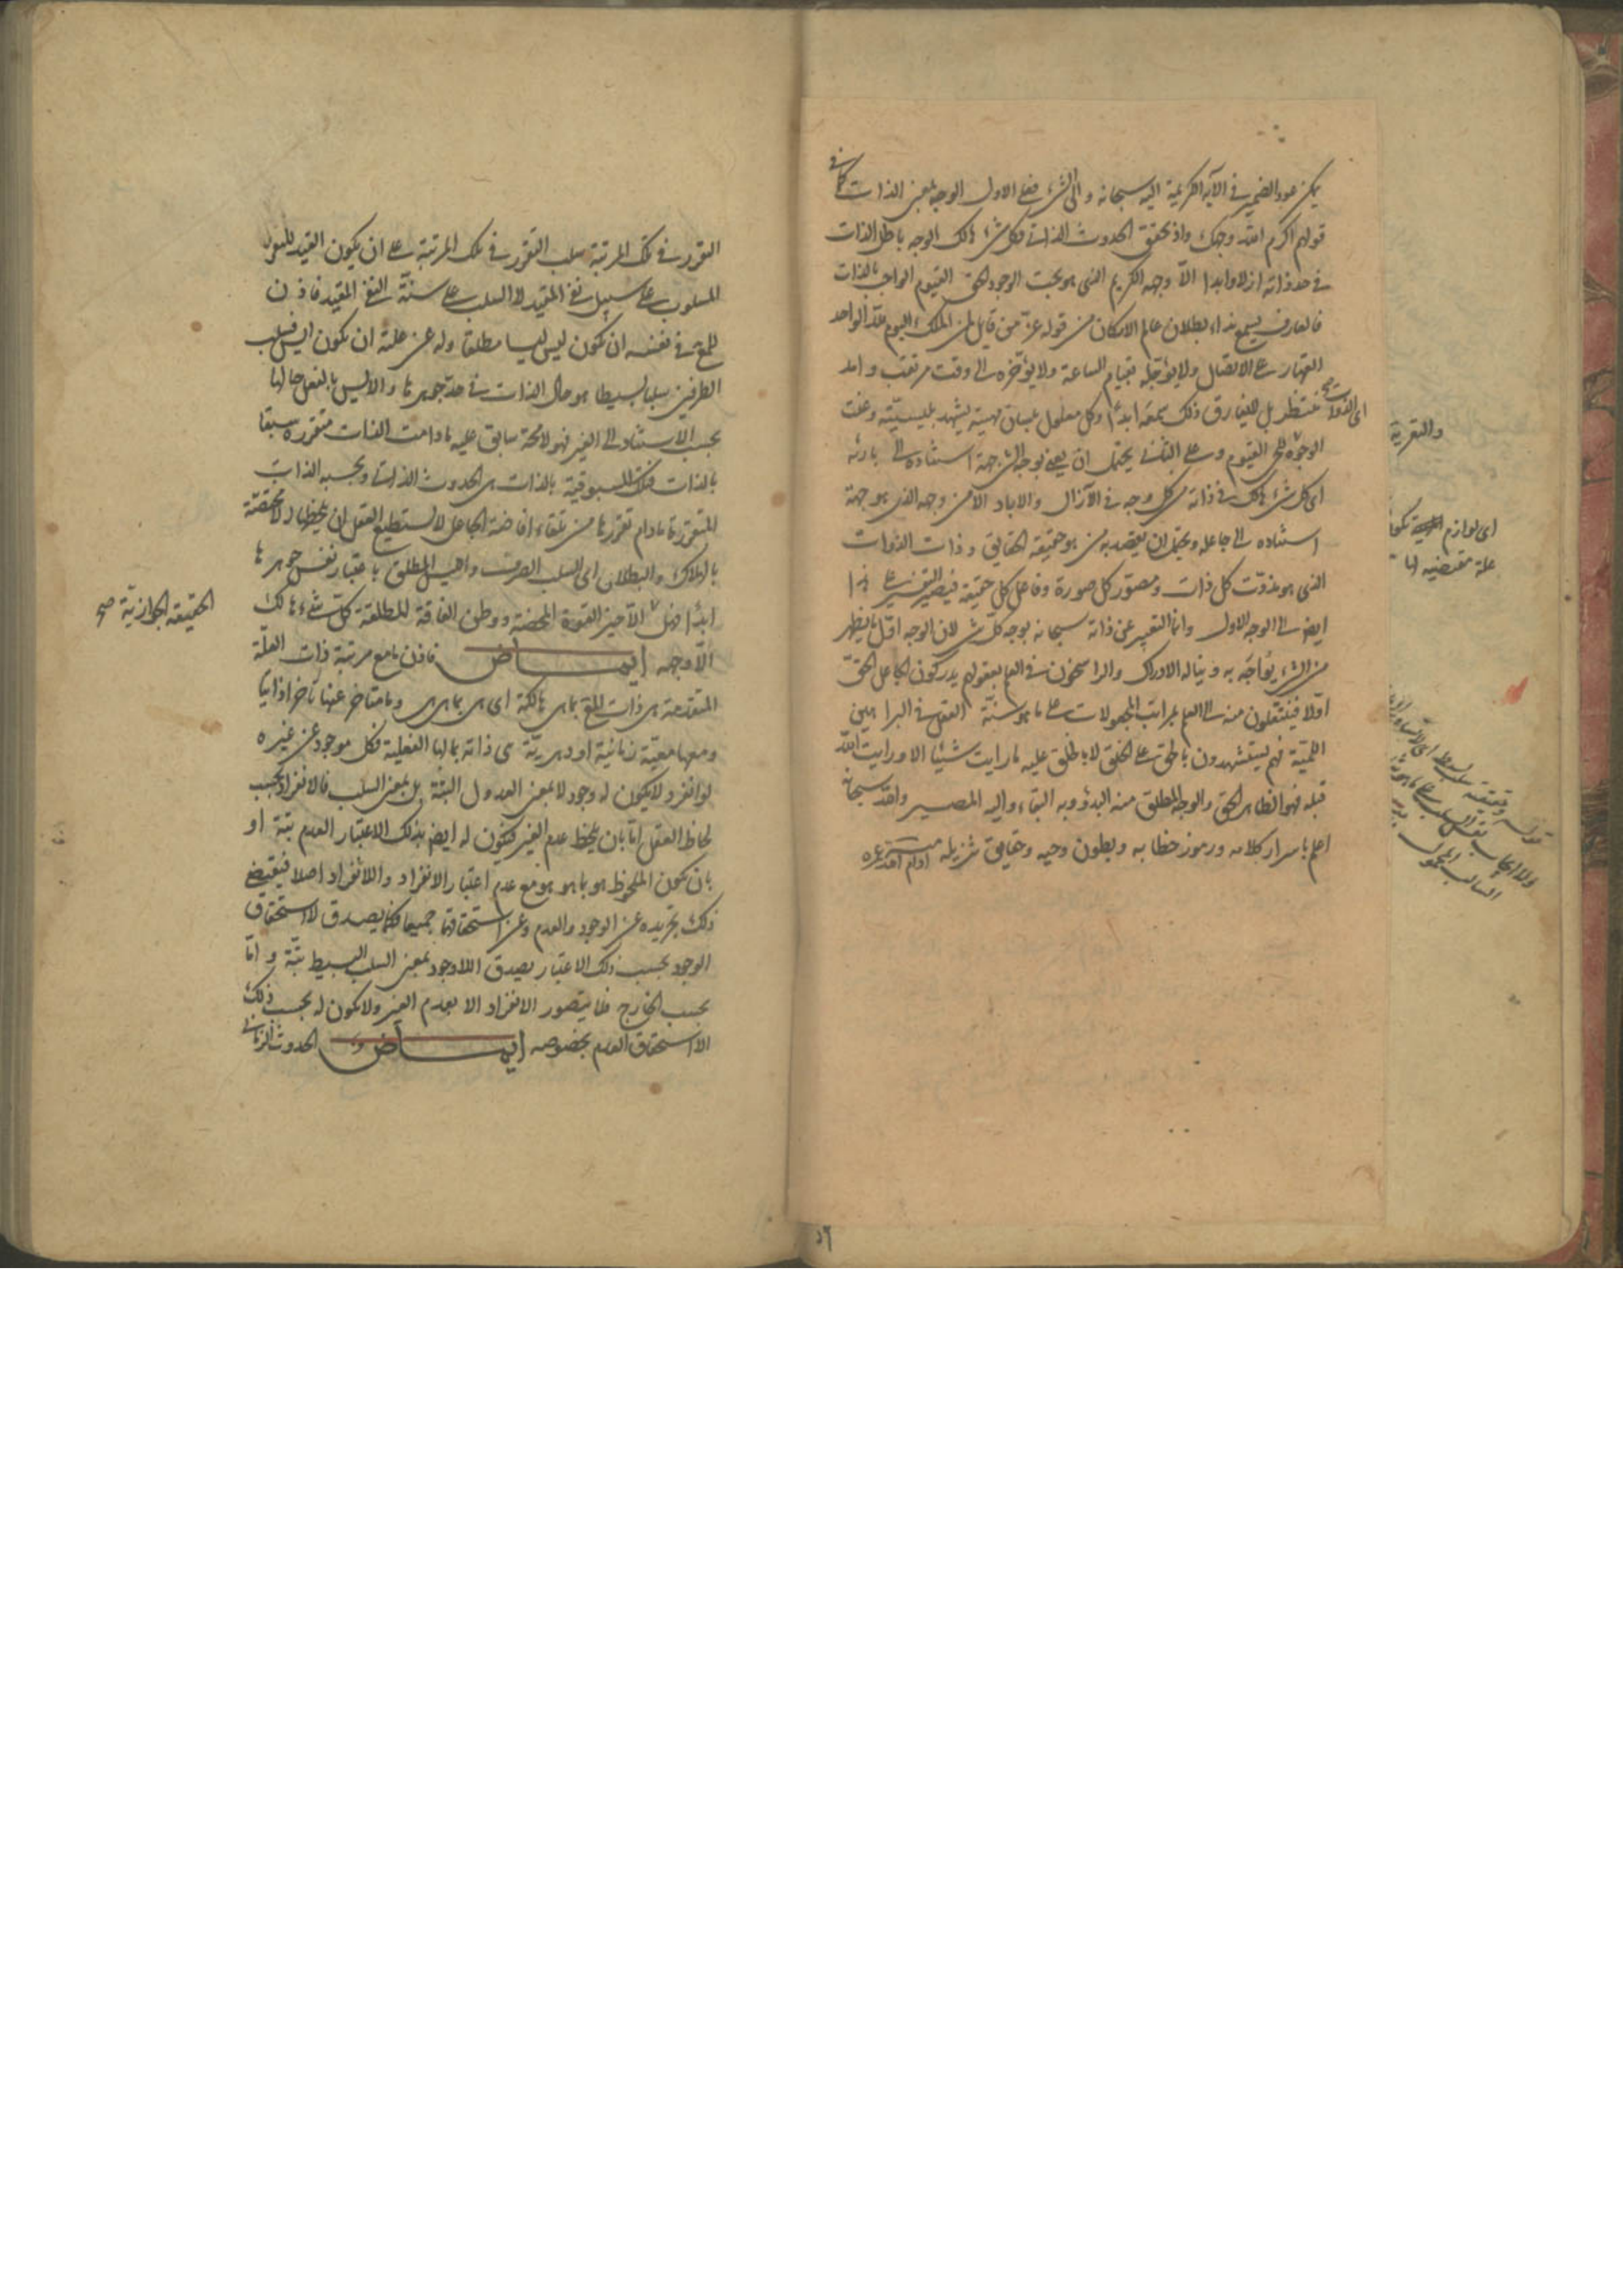 يمكن عود الضمير في الآية الكريمة اليه سبحانه والى الشيء فعلى الاول الوجه بمعنى الذات كما في
قولهم اكرم الله وجهك واذ تحقق الحدوث الذاتي فكل شيء هالك الوجه باطل الذات
في حد ذاته ازلا وابدا الا وجهه الكريم الذي هو بحت الوجود الحق القيوم الواجب بالذات
فالعارف يسمع نداء بطلان عالم الامكان من قوله عز من قايل لمن الملك اليوم لله الواحد
القهار على الاتصال ولا يؤجله بقيام الساعة ولا يؤخره الى وقت مرتقب وامد
منتظر بل لا يفارق ذلك سمعه ابدا وكل معلول بلسان مهيته يشهد بليسيته وعنت
الوجوه للحي القيوم وعلى الثاني يحتمل ان يعنى بوجه الشيء جهة استناده الى بارئه
اى كل شيء هالك في ذاته من كل وجه في الآزال والاباد الا من وجهه الذي هو جهة
استناده الى جاعله ويحتمل ان يقصد به من هو حقيقة الحقايق وذات الذوات
الذي هو مذوت كل ذات ومصور كل صورة وفاعل كل حقيقة فيصير التفسير على هذا
ايض الى الوجه الاول وانما التعبير عن ذاته سبحانه بوجه كل شيء لان الوجه اول ما يظهر
من الشيء يواجه به ويناله الادراك والراسخون في العلم بعقولهم يدركون الجاعل الحق
اولا فينتقلون منه الى العلم بمراتب المجعولات على ما هو سنة العقل في البراهين
اللمية فهم يستشهدون بالحق على الخلق لا بالخلق عليه ما رايت شيئا الا ورايت الله
قبله فهو الظاهر الحق والوجه المطلق منه البدؤ وبه البقاء واليه المصير والله سبحانه
اعلم باسرار كلامه ورموز خطابه وبطون وحيه وحقايق تنزيله منه ادام الله عزه
اى الذوات
اى لوازم
علة مقتضيه لها
٥٦
التقرر في تلك المرتبة سلب التقرر في تلك المرتبة على ان يكون القيد للتقرر
المسلوب على سبيل نفي المقيد لا السلب على سنة النفي المقيد فاذن
للمع في نفسه ان تكون ليس ليسا مطلقا وله عن علته ان تكون ايس فسلب
الطرفين سلبا بسيطا هو حال الذات في حد جوهرها والايس بالفعل حالها
بحسب الاستناد الى الغير فهو لا محة سابق عليه ما دامت الذات متقررة سبقا
بالذات فتلك المسبوقية بالذات هي الحدوث الذاتي وبحسبه الذات
المتقررة ما دام تقررها من تلقاء افاضة الجاعل لا يستطيع العقل ان يلحظها الا مختصة
بالهلاك والبطلان اى السلب الصرف والليس المطلق باعتبار نفس جوهرها
ابدا فهل الا حيز القوة المحضة ووطن الفاقة المطلقة كل شيء هالك
الا وجهه ايماض فاذن ما مع مرتبة ذات العلة
المتقدمة هي ذات المع بما هي هالكة اى هي بما هي هي وما متاخر عنها تاخرا ذاتيا
ومعها معية زمانية او دهرية هي ذاته بما لها الفعلية فكل موجود عن غيره
لو انفرد لا يكون له وجود لا بمعنى العدول البتة بل بمعنى السلب فالانفراد بحسب
لحاظ العقل اما بان يلحظ عدم الغير فيكون له ايض بذلك الاعتبار العدم بتة او
بان يكون الملحوظ هو بما هو هو مع عدم اعتبار الانفراد واللا انفراد اصلا فيقتضي
ذلك تجريده عن الوجود والعدم وعن استحقاقهما جميعا فكما يصدق لا استحقاق
الوجود بحسب ذلك الاعتبار يصدق اللاوجود بمعنى السلب البسيط بتة واما
بحسب الخارج فلا يتصور الانفراد الا بعدم الغير ولا يكون له بحسب ذلك
الا استحقاق العدم بخصوصه ايماض و الحدوث الزماني
الحقيقة الجوازية صح